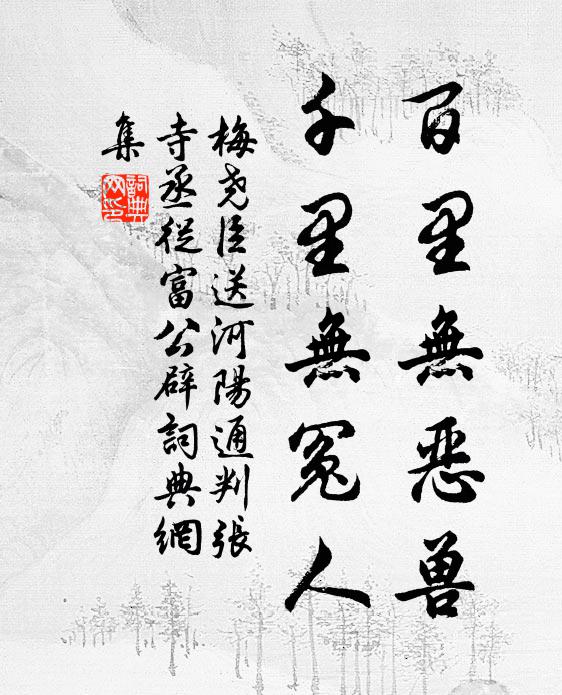 百里無恶兽
千里無冤人
梅尧臣送河陽通判張
寺丞從富公辟詞典網
集
詞典网印